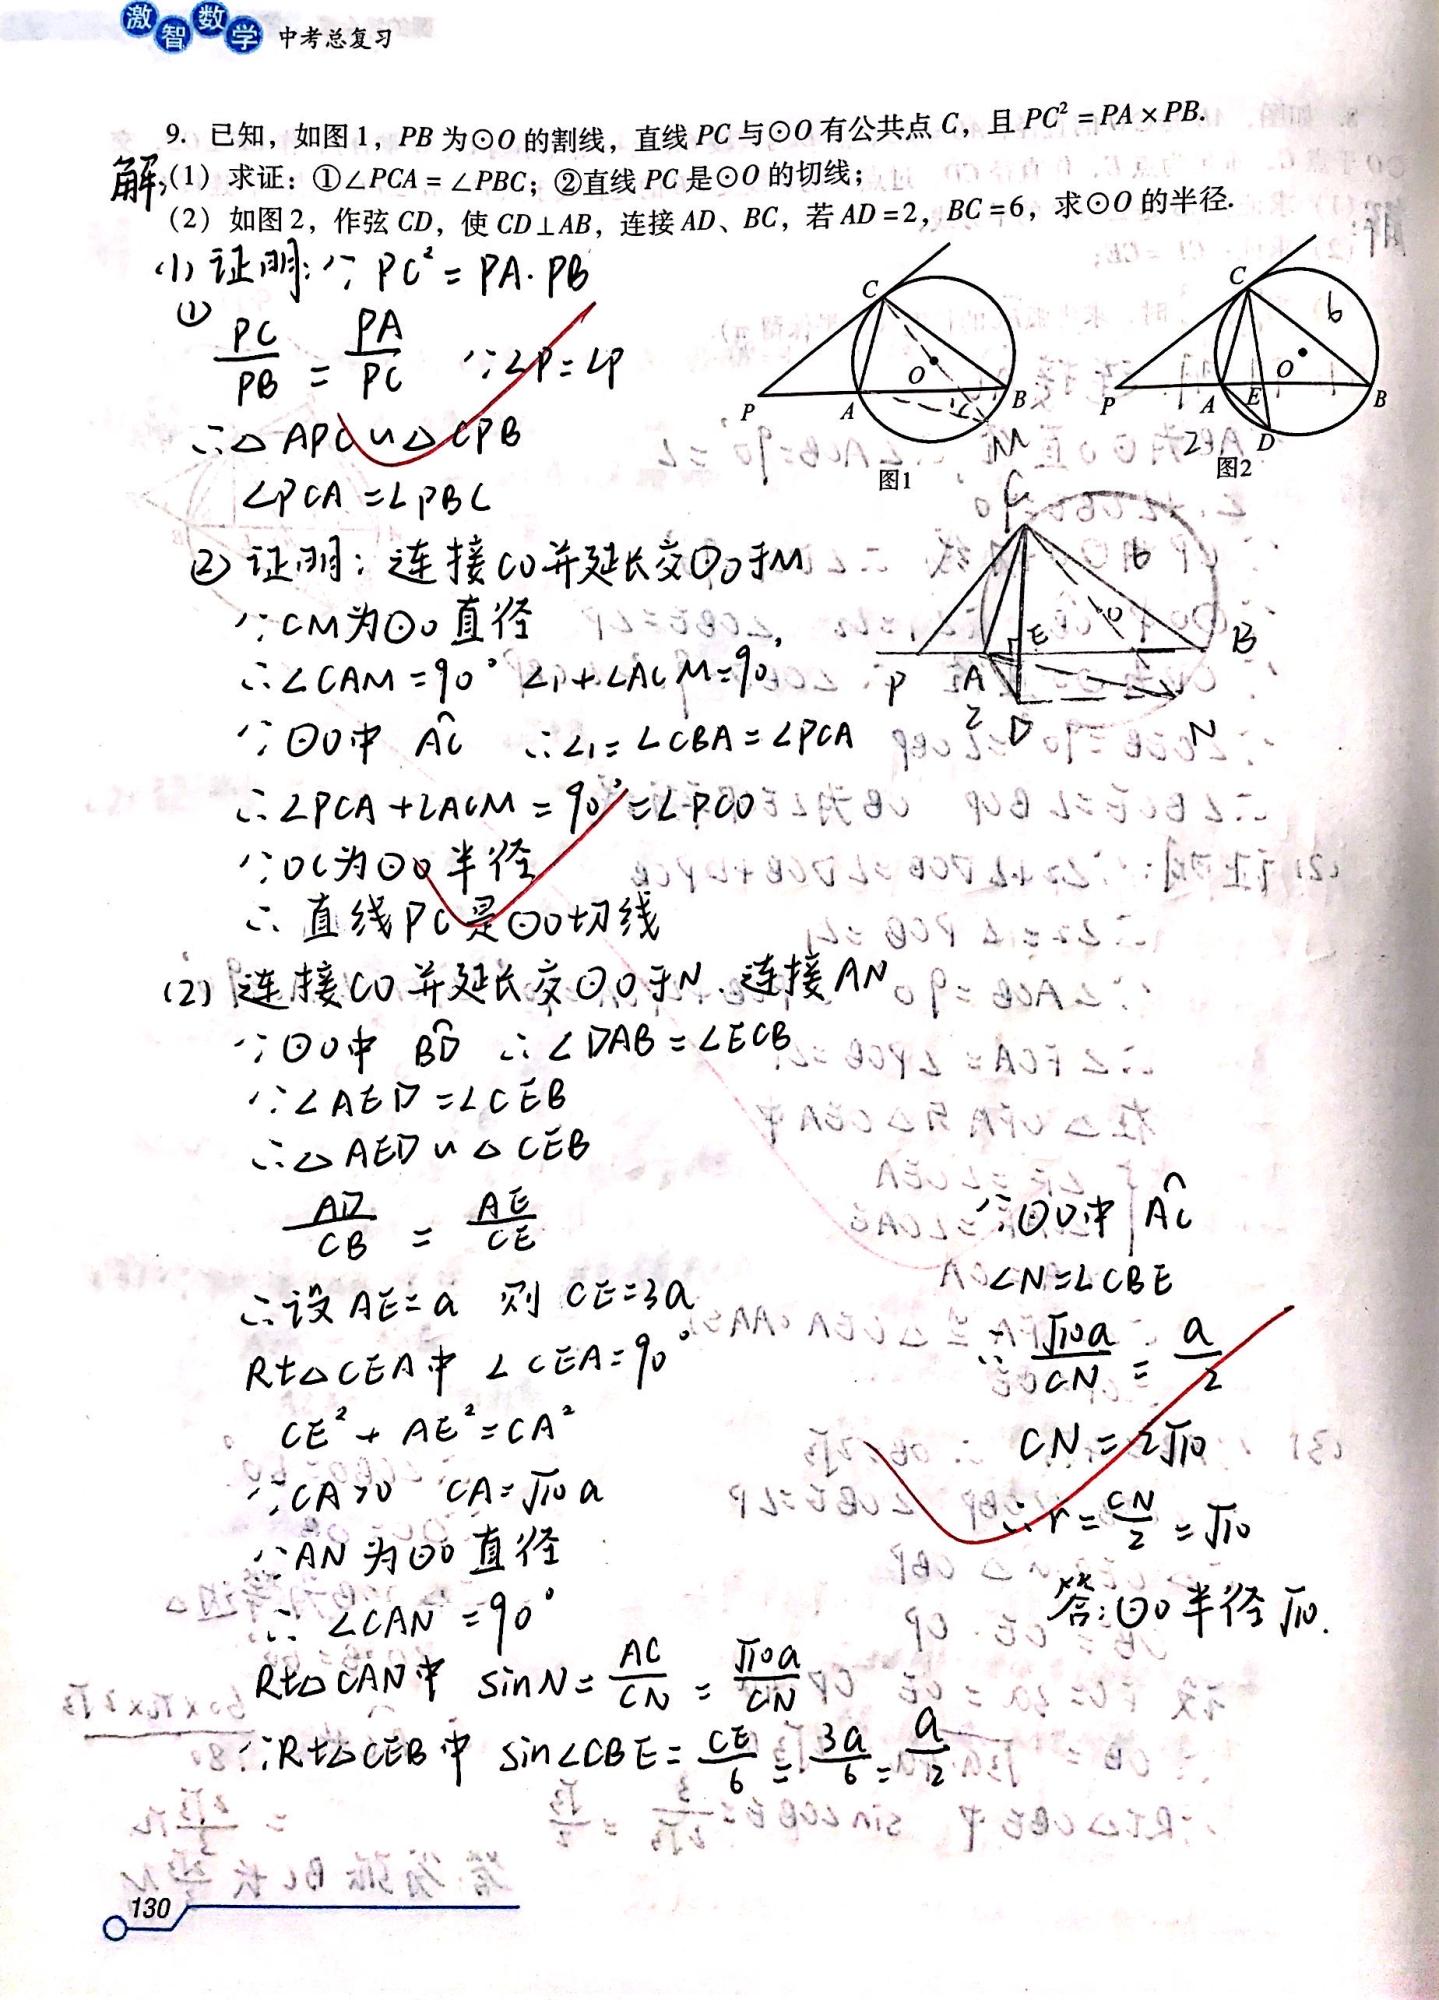 激智数学 中考总复习
9. 已知，如图1，PB为⊙O的割线，直线PC与⊙O有公共点C，且PC²=PA×PB.
解:(1) 求证：①∠PCA=∠PBC；②直线PC是⊙O的切线；
(2) 如图2，作弦CD，使CD⊥AB，连接AD、BC，若AD=2，BC=6，求⊙O的半径.
(1) 证明:∵PC²=PA·PB
① PC/PB = PA/PC ∵∠P=∠P
∴△APC∽△CPB
∠PCA=∠PBC
C
O
P
A
B
M
图1
C
6
O
P
A
E
B
2
D
图2
② 证明：连接CO并延长交⊙O于M
∵CM为⊙O直径
∴∠CAM=90° ∠1+∠ACM=90°
∵⊙O中 A͡C ∴∠1=∠CBA=∠PCA
∴∠PCA+∠ACM=90°=∠PCO
∵OC为⊙O半径
∴直线PC是⊙O切线
C
6
O
E
B
P
A
2
D
N
(2) 连接CO并延长交⊙O于N.连接AN
∵⊙O中 B͡D ∴∠DAB=∠ECB
∵∠AED=∠CEB
∴△AED∽△CEB
AD/CB = AE/CE
∴设AE=a 则CE=3a
Rt△CEA中 ∠CEA=90°
CE²+AE²=CA²
∵CA>0 CA=√10a
∵AN为⊙O直径
∴∠CAN=90°
Rt△CAN中 sinN=AC/CN=√10a/CN
∵Rt△CEB中 sin∠CBE=CE/6=3a/6=a/2
∵⊙O中 A͡C
∠N=∠CBE
∴√10a/CN=a/2
CN=2√10
∴r=CN/2=√10
答:⊙O半径√10.
130